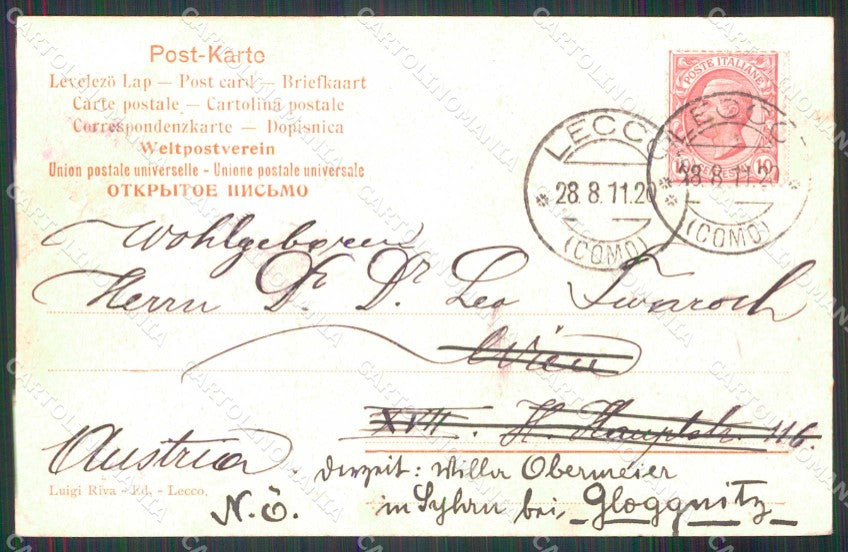 Post-Karte
Levelező Lap — Post card — Briefkaart
Carte postale — Cartolina postale
Correspondenzkarte — Dopisnica
Weltpostverein
Union postale universelle - Unione postale universale
ОТКРЫТОЕ ПИСЬМО
POSTE ITALIANE
10
LECCO
28.8.11.20
(COMO)
LECCO
28.8.11.20
(COMO)
Wohlgeboren
Herrn Dr. Dr Leo Twaroch
Wien
XVII. H. Hauptstr. 116.
Austria.
derzeit: Willa Obermeier
N.Ö.
in bei Gloggnitz
Luigi Riva - Ed. - Lecco.
CARTOLINOMANIA